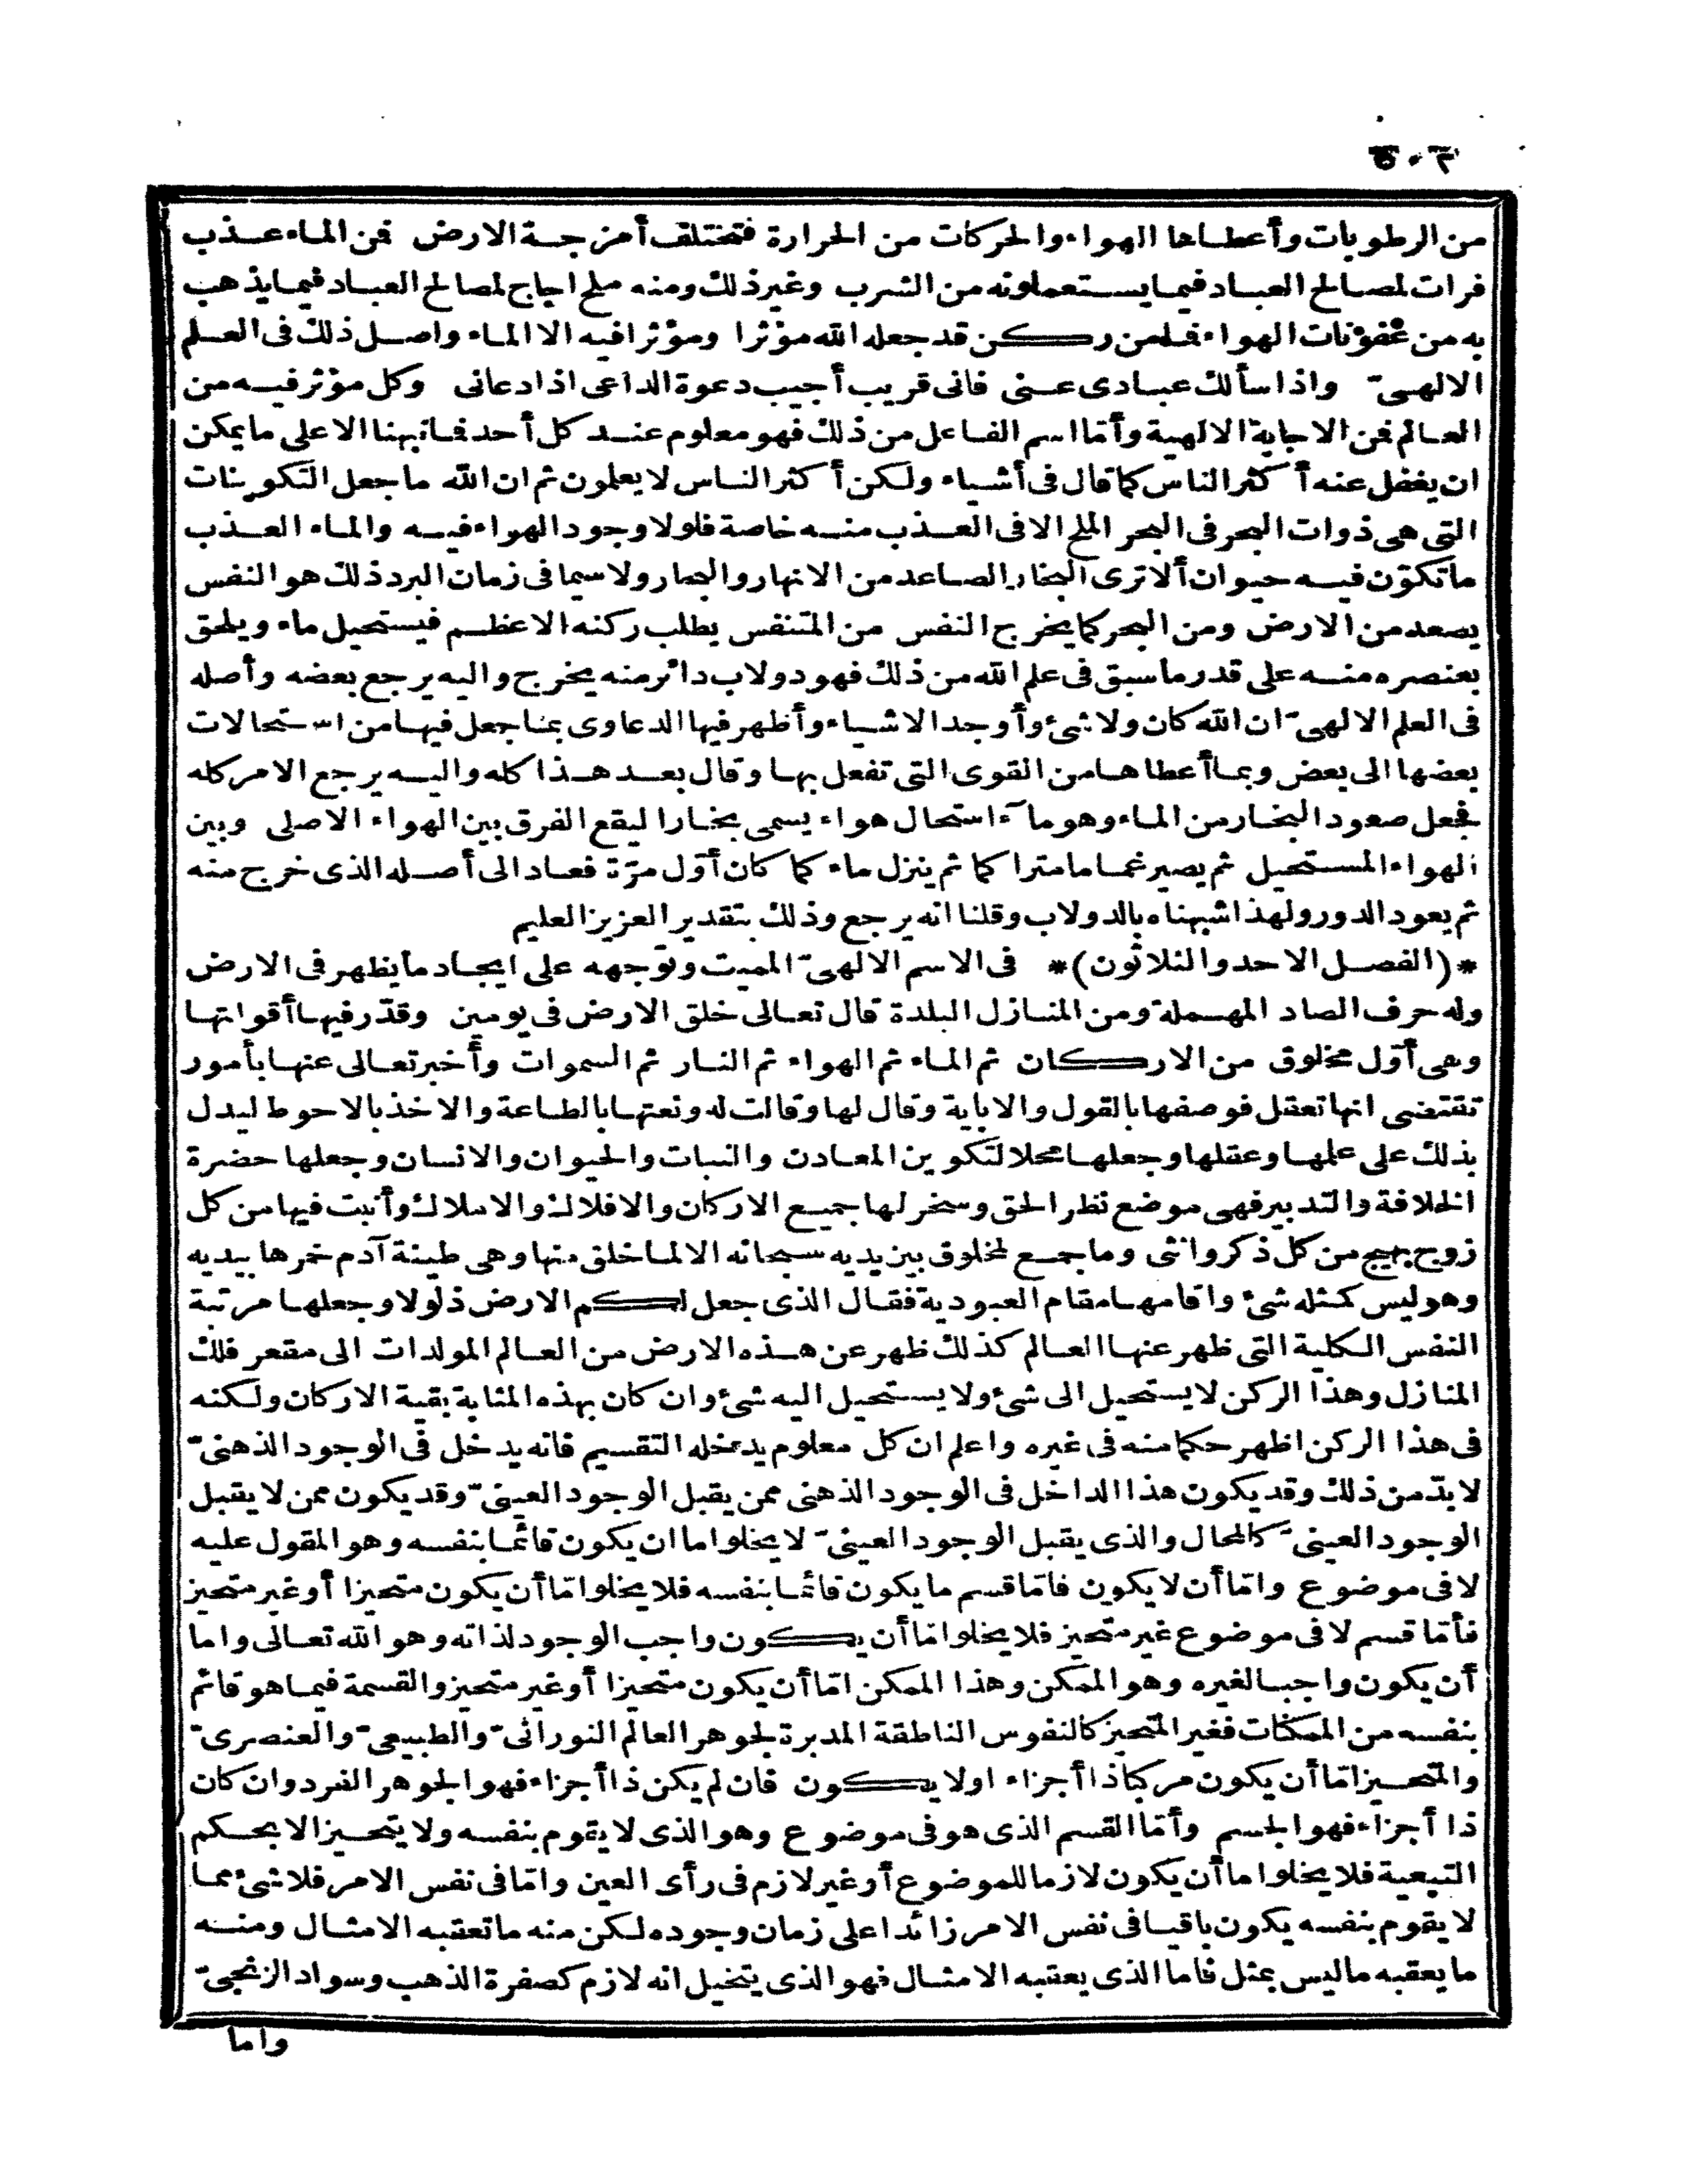 ٥٠٢
من الرطوبات وأعطاها الهواء والحركات من الحرارة فتختلف أمزجة الارض فمن الماء عذب
فرات لمصالح العباد فيما يستعملونه من الشرب وغير ذلك ومنه ملح اجاج لمصالح العباد فيما يذهب
به من عفونات الهواء فلمن ركن قد جعله الله مؤثرا ومؤثرا فيه الا الماء واصل ذلك فى العلم
الالهىّ واذا سألك عبادى عنى فانى قريب أجيب دعوة الداعى اذا دعانى وكل مؤثر فيه من
العالم فمن الاجابة الالهية وأمّا اسم الفاعل من ذلك فهو معلوم عند كل أحد فما نبهنا الا على ما يمكن
ان يغفل عنه أكثر الناس كما قال فى أشياء ولكن أكثر الناس لا يعلمون ثم ان الله ما جعل التكوينات
التى هى ذوات البحر فى البحر الملح الا فى العذب منه خاصة فلولا وجود الهواء فيه والماء العذب
ما تكوّن فيه حيوان ألا ترى البخار الصاعد من الانهار والبحار ولا سيما فى زمان البرد ذلك هو النفس
يصعد من الارض ومن البحر كما يخرج النفس من المتنفس يطلب ركنه الاعظم فيستحيل ماء ويلحق
بعنصره منه على قدر ما سبق فى علم الله من ذلك فهو دولاب دائر منه يخرج واليه يرجع بعضه وأصله
فى العلم الالهىّ ان الله كان ولا شئ وأوجد الاشياء وأظهر فيها الدعاوى بما جعل فيها من استحالات
بعضها الى بعض وبما أعطاها من القوى التى تفعل بها وقال بعد هذا كله واليه يرجع الامر كله
فجعل صعود البخار من الماء وهو ماء استحال هواء يسمى بخارا ليقع الفرق بين الهواء الاصلى وبين
الهواء المستحيل ثم يصير غماما متراكما ثم ينزل ماء كما كان أوّل مرّة فعاد الى أصله الذى خرج منه
ثم يعود الدور ولهذا شبهناه بالدولاب وقلنا انه يرجع وذلك بتقدير العزيز العليم
*(الفصل الاحد والثلاثون)* فى الاسم الالهىّ المميت وتوجهه على ايجاد ما يظهر فى الارض
وله حرف الصاد المهملة ومن المنازل البلدة قال تعالى خلق الارض فى يومين وقدّر فيها أقواتها
وهى أوّل مخلوق من الاركان ثم الماء ثم الهواء ثم النار ثم السموات وأخبر تعالى عنها بأمور
تقتضى انها تعقل فوصفها بالقول والاباية وقال لها وقالت له ونعتها بالطاعة والاخذ بالاحوط ليدل
بذلك على علمها وعقلها وجعلها محلا لتكوين المعادن والنبات والحيوان والانسان وجعلها حضرة
الخلافة والتدبير فهى موضع نظر الحق وسخر لها جميع الاركان والافلاك والاملاك وأنبت فيها من كل
زوج بهيج من كل ذكر وانثى وما جمع لمخلوق بين يديه سبحانه الا لما خلق منها وهى طينة آدم خمرها بيديه
وهو ليس كمثله شئ واقامها مقام العبودية فقال الذى جعل لكم الارض ذلولا وجعلها مرتبة
النفس الكلية التى ظهر عنها العالم كذلك ظهر عن هذه الارض من العالم المولدات الى مقعر فلك
المنازل وهذا الركن لا يستحيل الى شئ ولا يستحيل اليه شئ وان كان بهذه المثابة بقية الاركان ولكنه
فى هذا الركن اظهر حكما منه فى غيره واعلم ان كل معلوم يدخله التقسيم فانه يدخل فى الوجود الذهنىّ
لا بدّ من ذلك وقد يكون هذا الداخل فى الوجود الذهنى ممن يقبل الوجود العينىّ وقد يكون ممن لا يقبل
الوجود العينىّ كالمحال والذى يقبل الوجود العينىّ لا يخلو اما ان يكون قائما بنفسه وهو المقول عليه
لا فى موضوع وامّا أن لا يكون فامّا قسم ما يكون قائما بنفسه فلا يخلو امّا أن يكون متحيزا أو غير متحيز
فأمّا قسم لا فى موضوع غير متحيز فلا يخلو امّا أن يكون واجب الوجود لذاته وهو الله تعالى واما
أن يكون واجبا لغيره وهو الممكن وهذا الممكن امّا أن يكون متحيزا أو غير متحيز والقسمة فيما هو قائم
بنفسه من الممكنات فغير المتحيز كالنفوس الناطقة المدبرة لجوهر العالم النورانىّ والطبيعىّ والعنصرىّ
والمتحيز امّا أن يكون مركبا ذا أجزاء اولا يكون فان لم يكن ذا أجزاء فهو الجوهر الفرد وان كان
ذا أجزاء فهو الجسم وأمّا القسم الذى هو فى موضوع وهو الذى لا يقوم بنفسه ولا يتحيز الا بحكم
التبعية فلا يخلو اما أن يكون لازما للموضوع أو غير لازم فى رأى العين وامّا فى نفس الامر فلا شئ مما
لا يقوم بنفسه يكون باقيا فى نفس الامر زائدا على زمان وجوده لكن منه ما تعقبه الامثال ومنه
ما يعقبه ما ليس بمثل فاما الذى يعقبه الامثال فهو الذى يتخيل انه لازم كصفرة الذهب وسواد الزنجىّ
واما